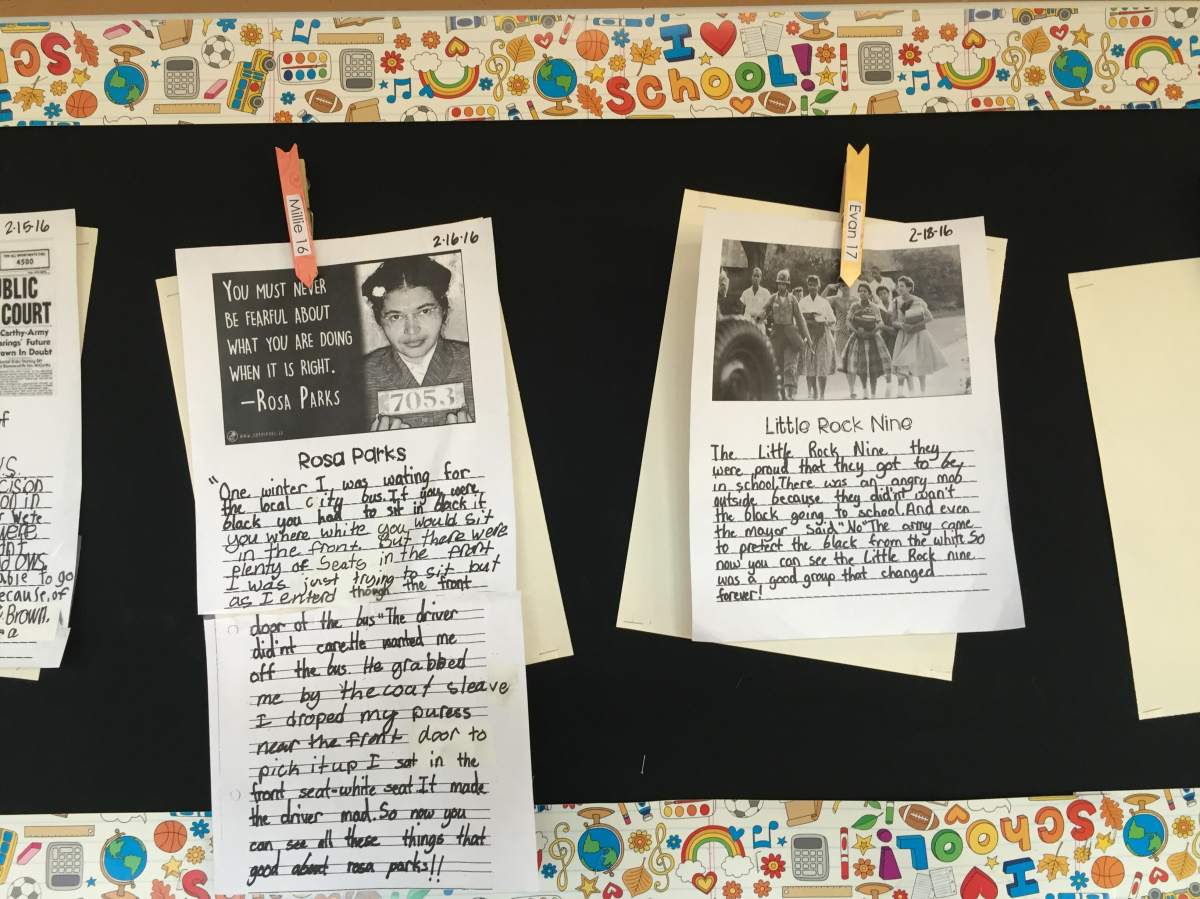 I SCHOOL!
2-15-16
4500
BLIC
COURT
Carthy-Army
arings' Future
own In Doubt
of
US.
cison
on in
r We're
were
dnt
dows
able to go
ecause, of
Brown.
a
Millie 16
2-16-16
YOU MUST NEVER
BE FEARFUL ABOUT
WHAT YOU ARE DOING
WHEN IT IS RIGHT.
—ROSA PARKS
7053
Rosa Parks
"One winter I was wating for
the local city bus. If you were
black you had to sit in back it
you where white you would sit
in the front. But there were
plenty of seats in the front
I was just trying to sit but
as I enterd though the front
door of the bus "The driver
did'nt care. He wanted me
off the bus. He grabbed
me by the coat sleave
I droped my puress
near the front door to
pick it up I sat in the
front seat-white seat. It made
the driver mad. So now you
can see all these things that
good about rosa parks!!
Evan 17
2-18-16
Little Rock Nine
The Little Rock Nine they
were proud that they got to be
in school. There was an angry mob
outside because they did'nt wan't
the black going to school. And even
the mayor said "No" The army came
to pretect the black from the white. So
now you can see the Little Rock nine
was a good group that changed
forever!
SCHOOL!
I